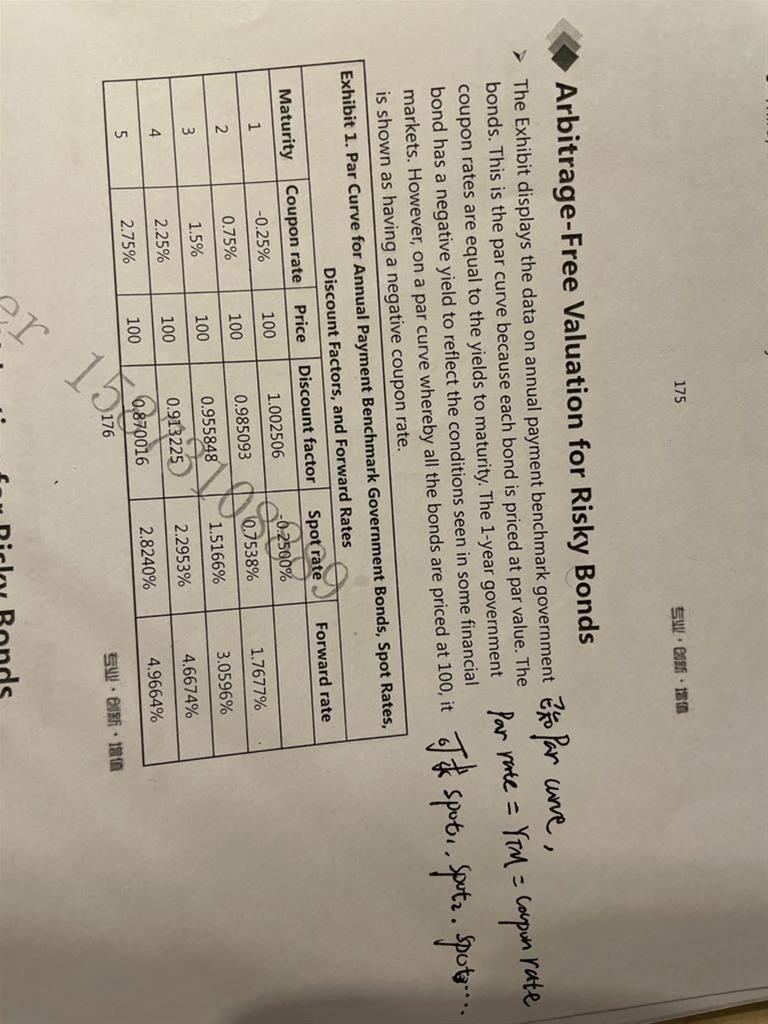 175
专业·创新·增值
Arbitrage-Free Valuation for Risky Bonds
➢ The Exhibit displays the data on annual payment benchmark government
bonds. This is the par curve because each bond is priced at par value. The
coupon rates are equal to the yields to maturity. The 1-year government
bond has a negative yield to reflect the conditions seen in some financial
markets. However, on a par curve whereby all the bonds are priced at 100, it
is shown as having a negative coupon rate.
已知 par curve,
par rate = YTM = coupon rate
可求 spot1, spot2, spot3...
Exhibit 1. Par Curve for Annual Payment Benchmark Government Bonds, Spot Rates,
Discount Factors, and Forward Rates
Maturity Coupon rate Price Discount factor Spot rate Forward rate
1 -0.25% 100 1.002506 -0.2500%
2 0.75% 100 0.985093 0.7538% 1.7677%
3 1.5% 100 0.955848 1.5166% 3.0596%
4 2.25% 100 0.913225 2.2953% 4.6674%
5 2.75% 100 0.870016 2.8240% 4.9664%
176
专业·创新·增值